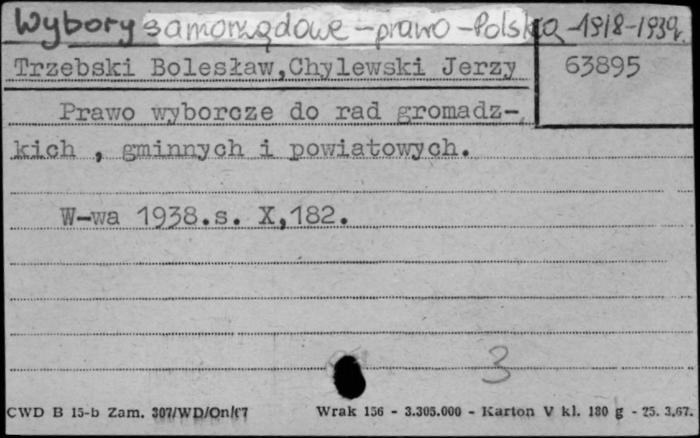 Wybory samorządowe - prawo - Polska - 1918-1939r.
Trzebski Bolesław,Chylewski Jerzy 63895
Prawo wyborcze do rad gromadz-
kich , gminnych i powiatowych.
W-wa 1938.s. X,182.
3
CWD B 15-b Zam. 307/WD/On/67 Wrak 156 - 3.305.000 - Karton V kl. 180 g - 25. 3.67.